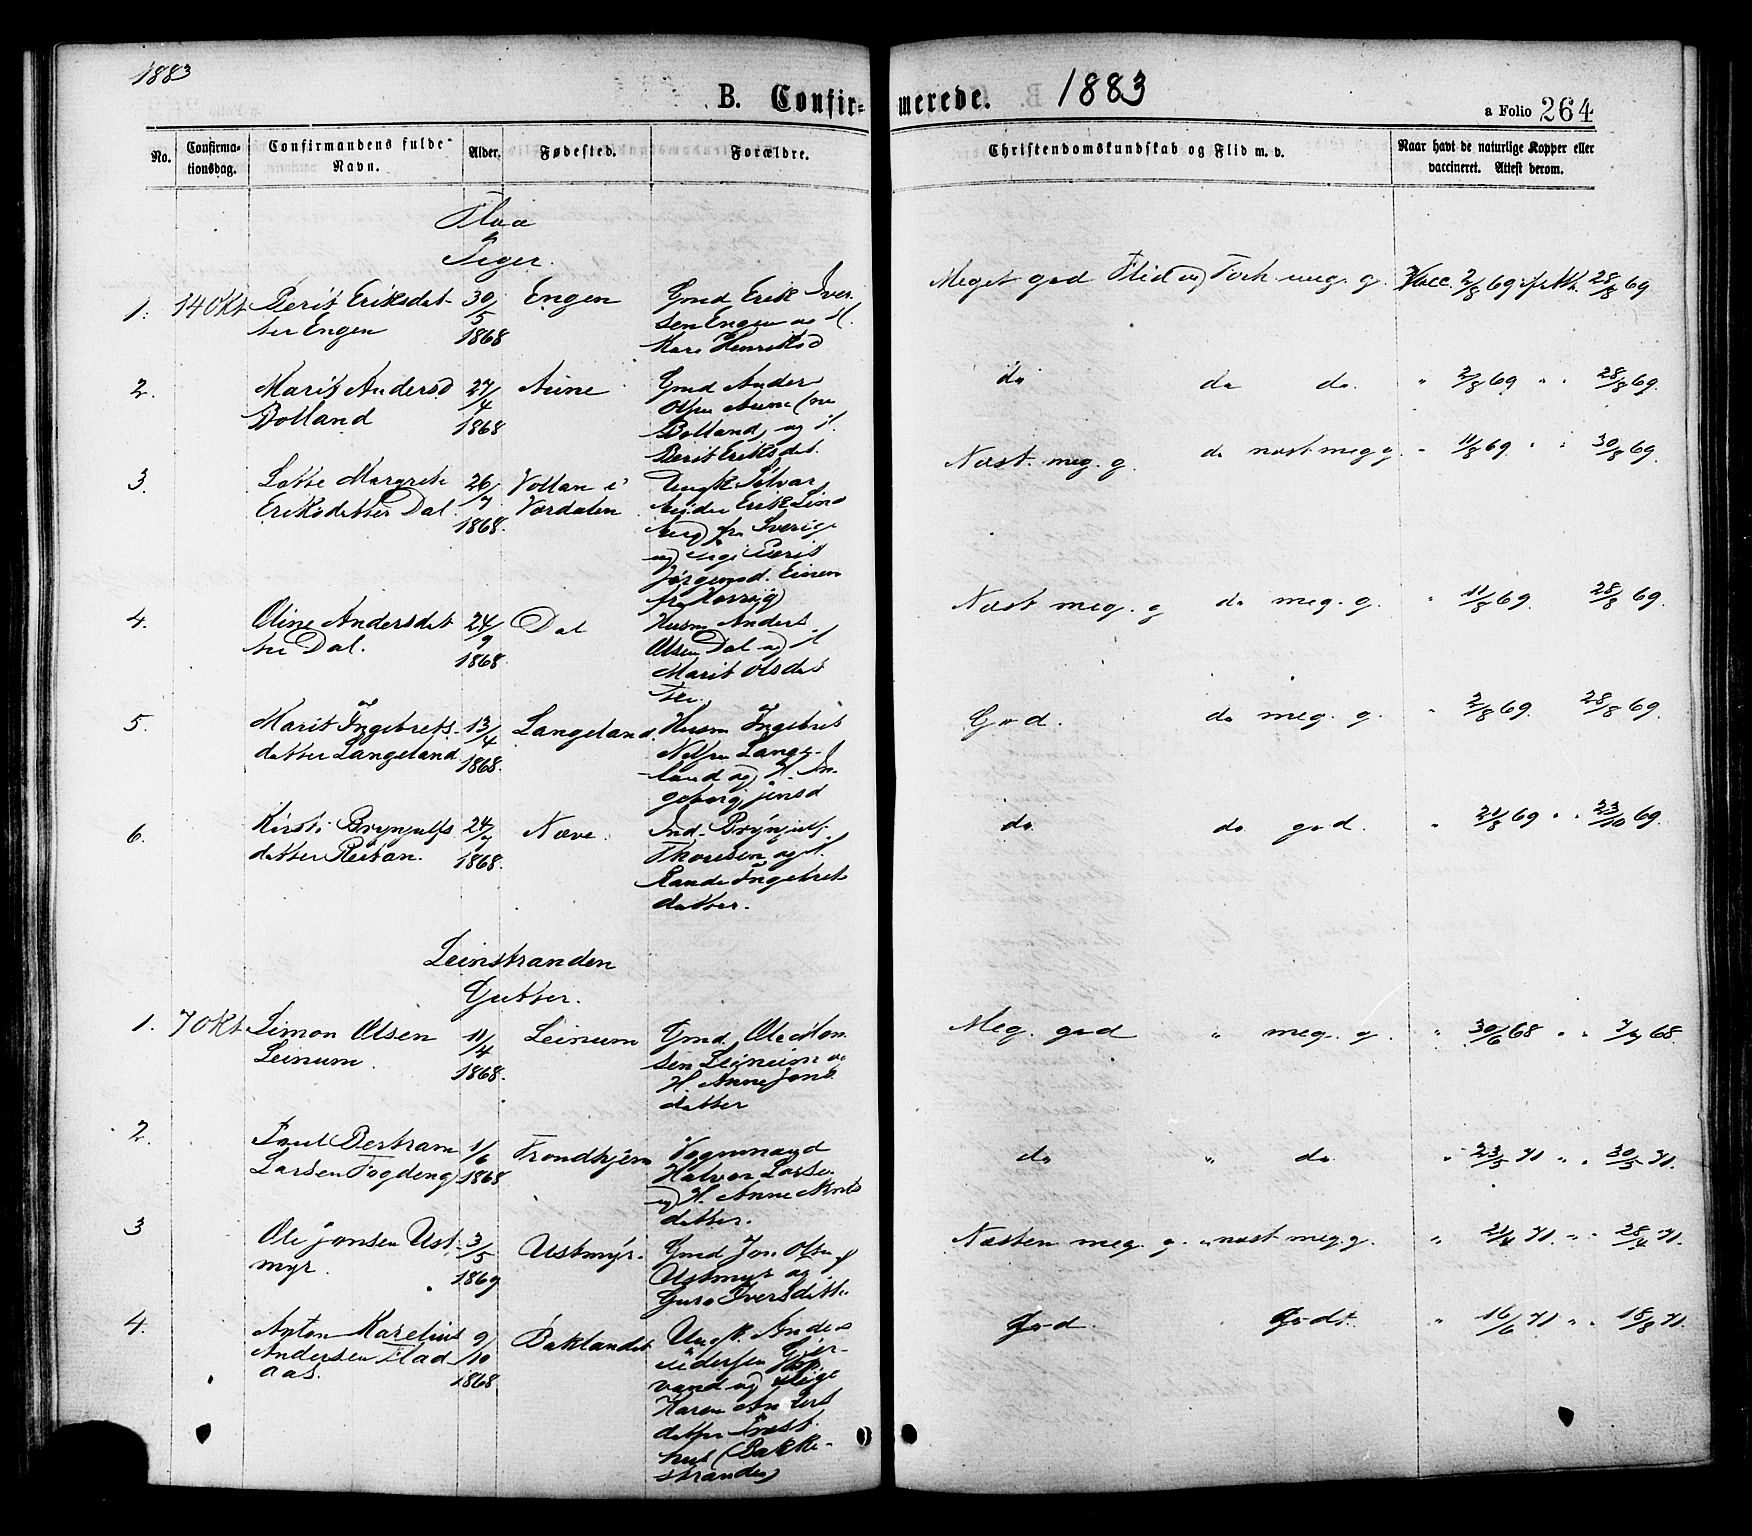 1883
B. Confirmerede. 1883
a Folio 264
No.
Confirmationsdag.
Confirmandens fulde Navn.
Alder.
Fødested.
Forældre.
Christendomskundskab og Flid m. v.
Naar havt de naturlige Kopper eller vaccineret. Attest derom.
Flaa
Piger.
1. 14 Okt Berit Eriksdat- 30/5 Engen Gmd Erik Iver-
ter Engen 1868 sen Engen og H.
Kari Henriksd
Meget god Flid og Forh. meg. g. Vacc. 2/8 69 28/8 69
2. Marit Andersd 27/4 Aune Gmd Anders
Bolland 1868 Olsen Aune (nu
Bolland) og H.
Berit Eriksdat.
do do do. " 2/8 69 " " 28/8 69.
3. Lotte Margrete 26/7 Vollan i Ungk
Eriksdatter Dal. 1868. Værdalen Erik Lind
berg fra Sverige
og Pige Berit
Jørgensd.
Næst. meg. g. do næst meg g. " 11/8 69 " " 30/8 69.
4. Oline Andersdat 24/9 Dal Husm Anders
ter Dal. 1868. Olsen Dal og H
Marit Olsdat
ter.
Næst meg. g do meg. g. " 11/8 69. 28/8 69.
5. Marit Ingebrets- 13/4 Langeland. Husm Ingebret
datter Langeland 1868. Lange-
land og H. In-
geborg Jensd
God. do meg. g. " 2/8 69. 28/8 69.
6. Kirsti Brynjulfs 24/7 Næve. Ind. Brynjulf
datter Reitan. 1868. Thoresen og H.
Rande Ingebrets
datter.
do do god. " 21/8 69 " " 23/10 69.
Leinstranden
Gutter.
1. 7 Okt Simon Olsen 11/4 Leinum Gmd Ole
Leinum. 1868. sen Leinum og
H. Anne Jons
datter
Meg. god " meg. g. " 30/6 68 " " 3/7 68.
2. Paul Bertram 1/6 Trondhjem Vognmand
Larsen 1868 Halvor Larsen
og H. Anne
datter.
do " do " 23/5 71 " " 30/5 71.
3 Ole Jonsen Ust- 3/5 Ustmyr. Gmd Jon Olsen
myr. 1869 Ustmyr og
Guro Iversdatter
Næsten meg. g. " næst meg. g. " 21/4 71. " " 28/4 71.
4. Anton Karelius 9/10 Baklandet Ungk. Anders
Andersen Flad 1868 Pedersen Gjer-
aas. vand og Pige
Karen Anders
datter
hus (Bakke-
stranden)
God. Godt. " 16/6 71 " " 18/8 71.